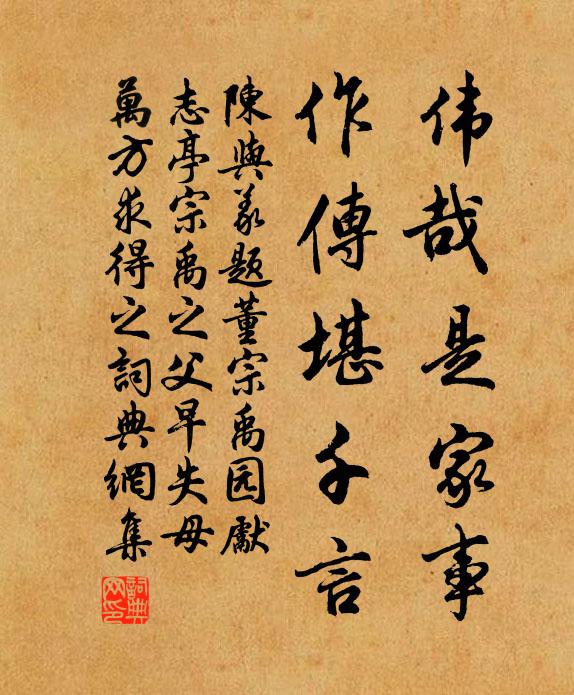 伟哉是家事
作傳堪千言
陳與义題董宗禹园獻
志亭宗禹之父早失母
萬方求得之詞典網集
詞典網印